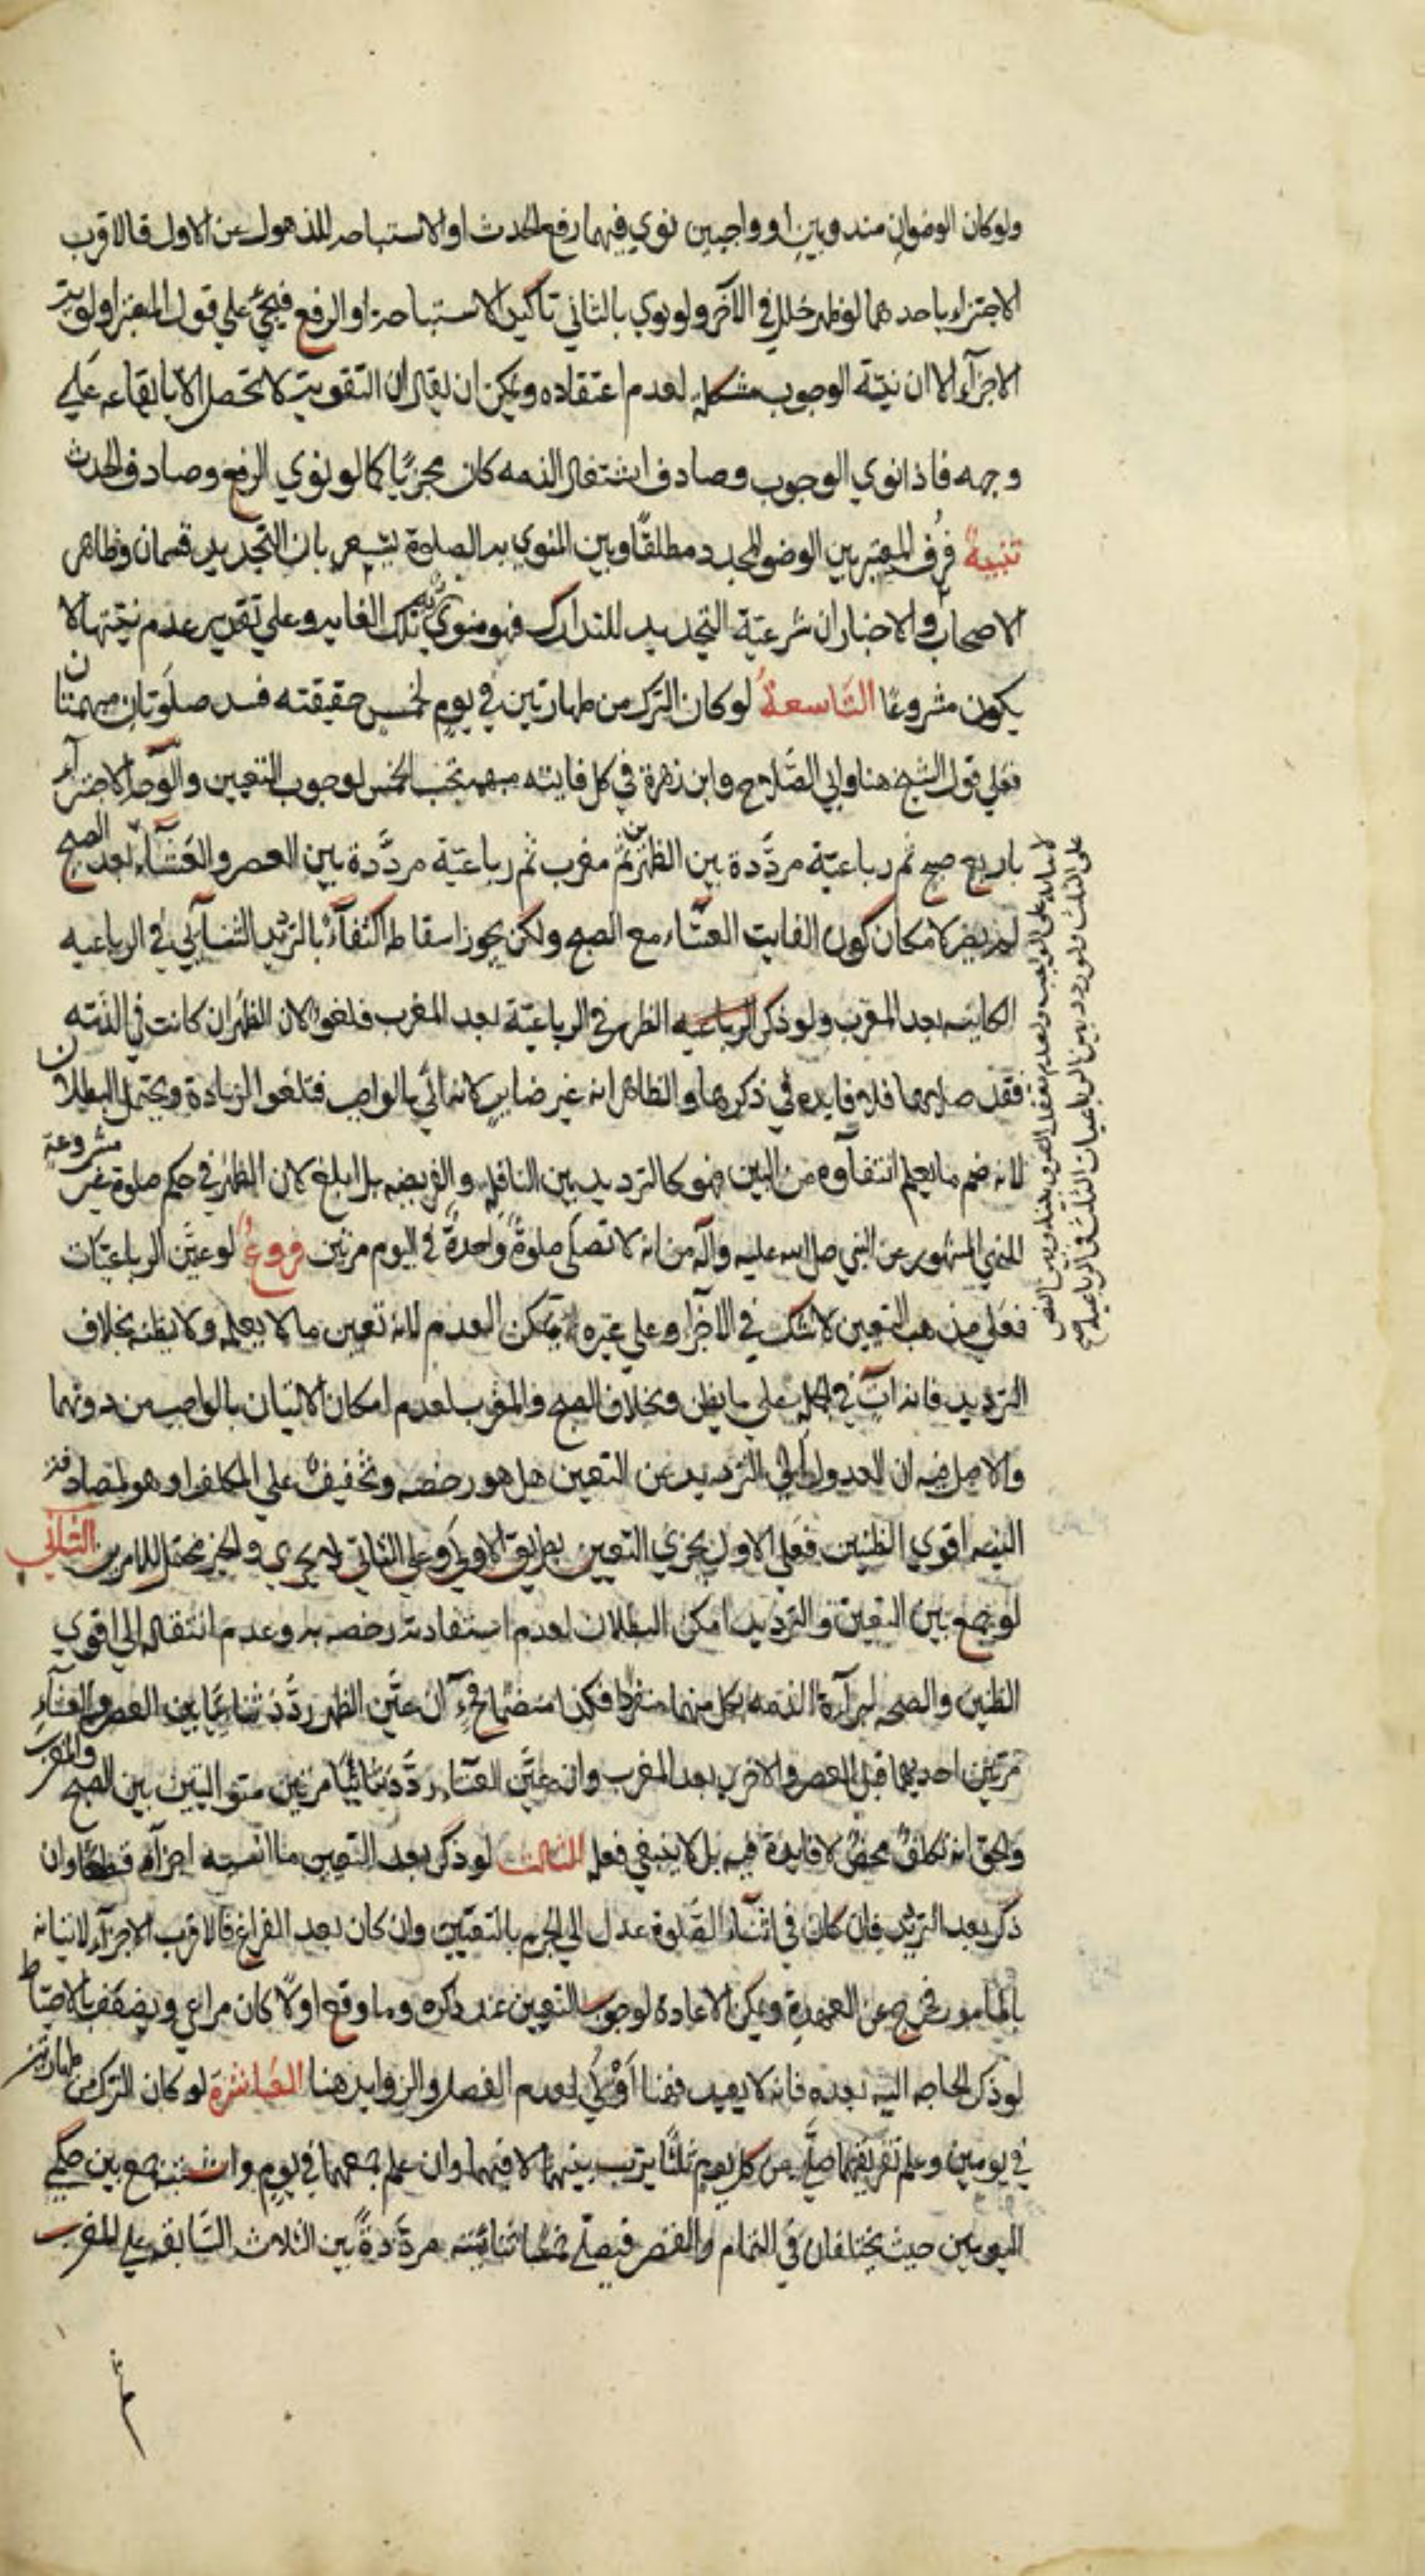 ولوكان الوضوان مندوبين او واجبين نوي فيهما رفع الحدث او الاستباحه للذهول عن الاول فالاقرب
الاجتزاء باحدهما لو ظهر خلل في الآخر ولو نوي بالثاني تاكيد الاستباحة او الرفع فيجيء علي قول المعتبر اولويته
الاجزآء الا ان نيّة الوجوب مشكله لعدم اعتقاده ويمكن ان يقال ان التقويت لا تحصل الا بايقاعه علي
وجهه فاذا نوي الوجوب وصادف اشتغال الذمه كان مجزيًا كما لو نوي الرفع وصادف الحدث
تنبيه فرق المعتبر بين الوضو المجدد مطلقًا وبين المنوي به الصلوة يشعر بان التجديد قسمان وظاهر
الاصحاب والاخبار ان شرعيّة التجديد للتدارك فهو منوي به تلك الغايه وعلي تقدير عدم نيّتها لا
يكون مشروعًا التاسعة لو كان الترك من طهارتين في يوم لخمس حقيقته فسد صلوتان مبهمتان
فعلي قول الشيخ هنا وابي الصّلاح وابن زهرة في كل فايته مبهمه تجب الخمس لوجوب التعيين والوجه الاجتزآء
باربع صبح ثم رباعيّة مردّدة بين الظهرين ثم مغرب ثم رباعيّة مردّدة بين العصر والعشآء بعد الصبح
لم يضر لامكان كون الفايت العشآء مع الصبح ولكن يجوز اسقاطه اكتفآء بالترديد الثنائي في الرباعيه
الكاينه بعد المغرب ولو ذكر الرباعيه الظهر في الرباعيّة بعد المغرب فلغو لان الظهر ان كانت في الذمّه
فقد صلاها فلا فايده في ذكرها والظاهر انه غير ضاير لانه اتي بالواجب فتلغوا الزيادة ويحتمل البطلان
لانه ضم ما يعلم انتفآوه من البين فهو كالترديد بين النافله والفريضه بل ابلغ لان الظهر في حكم صلوة غير مشروعة
للنهي المشهور عن النبي صلي الله عليه وآله من انه لا تصلي صلوة واحدة في اليوم مرتين فروع لو عيّن الرباعيّات
فعلي مذهب التعيين لا شك في الاجزا وعلي غيره يمكن العدم لانه تعيين ما لا يعلمه ولا يظنه بخلاف
الترديد فانه آت في الكل علي ما يظن وبخلاف الصبح والمغرب لعدم امكان الاتيان بالواجب من دونهما
والاصل فيه ان العدول الي الترديد عن التعيين هل هو رخصه وتخفيف علي المكلف او هو لمصادفة
النيه اقوي الظنين فعلي الاول يجزي التعيين بطريق الاولي وعلي الثاني لا يجزي والخبر محتمل للامرين الثاني
لو جمع بين التعيين والترديد امكن البطلان لعدم استفادته رخصه به وعدم انتقاله الي اقوي
الظنين والصحه لبرآءة الذمه بكل منهما منفردا فكذا منضمّا فح ان عيّن الظهر ردّد ثنائيا بين العصر والعشآء
مرّتين احديهما قبل العصر والاخري بعد المغرب وان عيّن العشاء ردّد ثنائيًا مرتين متواليتين بين الصبح والمغرب
والحق انه تكلف محض لا فايدة فيه بل لا ينبغي فعله الثالث لو ذكر بعد التعيين ما انسيه اجزآه قطعًا وان
ذكر بعد الترديد فان كان في اثنآء الصّلوة عدل الي الجزم بالتعيين وان كان بعد الفراغ فالاقرب الاجزآء لاتيانه
بالمامور فخرج عن العهدة ويمكن الاعادة لوجوب التعيين عند ذكره وما وقع اولًا كان مراعي ويضعف بالاحتياط
لو ذكر الحاجه اليه بعده فانه لا يعيد فهنا اولي لعدم الفصل والزوايد هنا العاشرة لو كان الترك من طهارتين
في يومين وعلم تفريقهما صلّي عن كل يوم ثلثًا يرتب بينهما لا فيهما وان علم جمعهما في يوم واشتبه جمع بين حكمي
اليومين حيث يختلفان في التمام والقصر فيصلي ثنائيّة مردّدةً بين الثلاث السّابقه علي المغرب